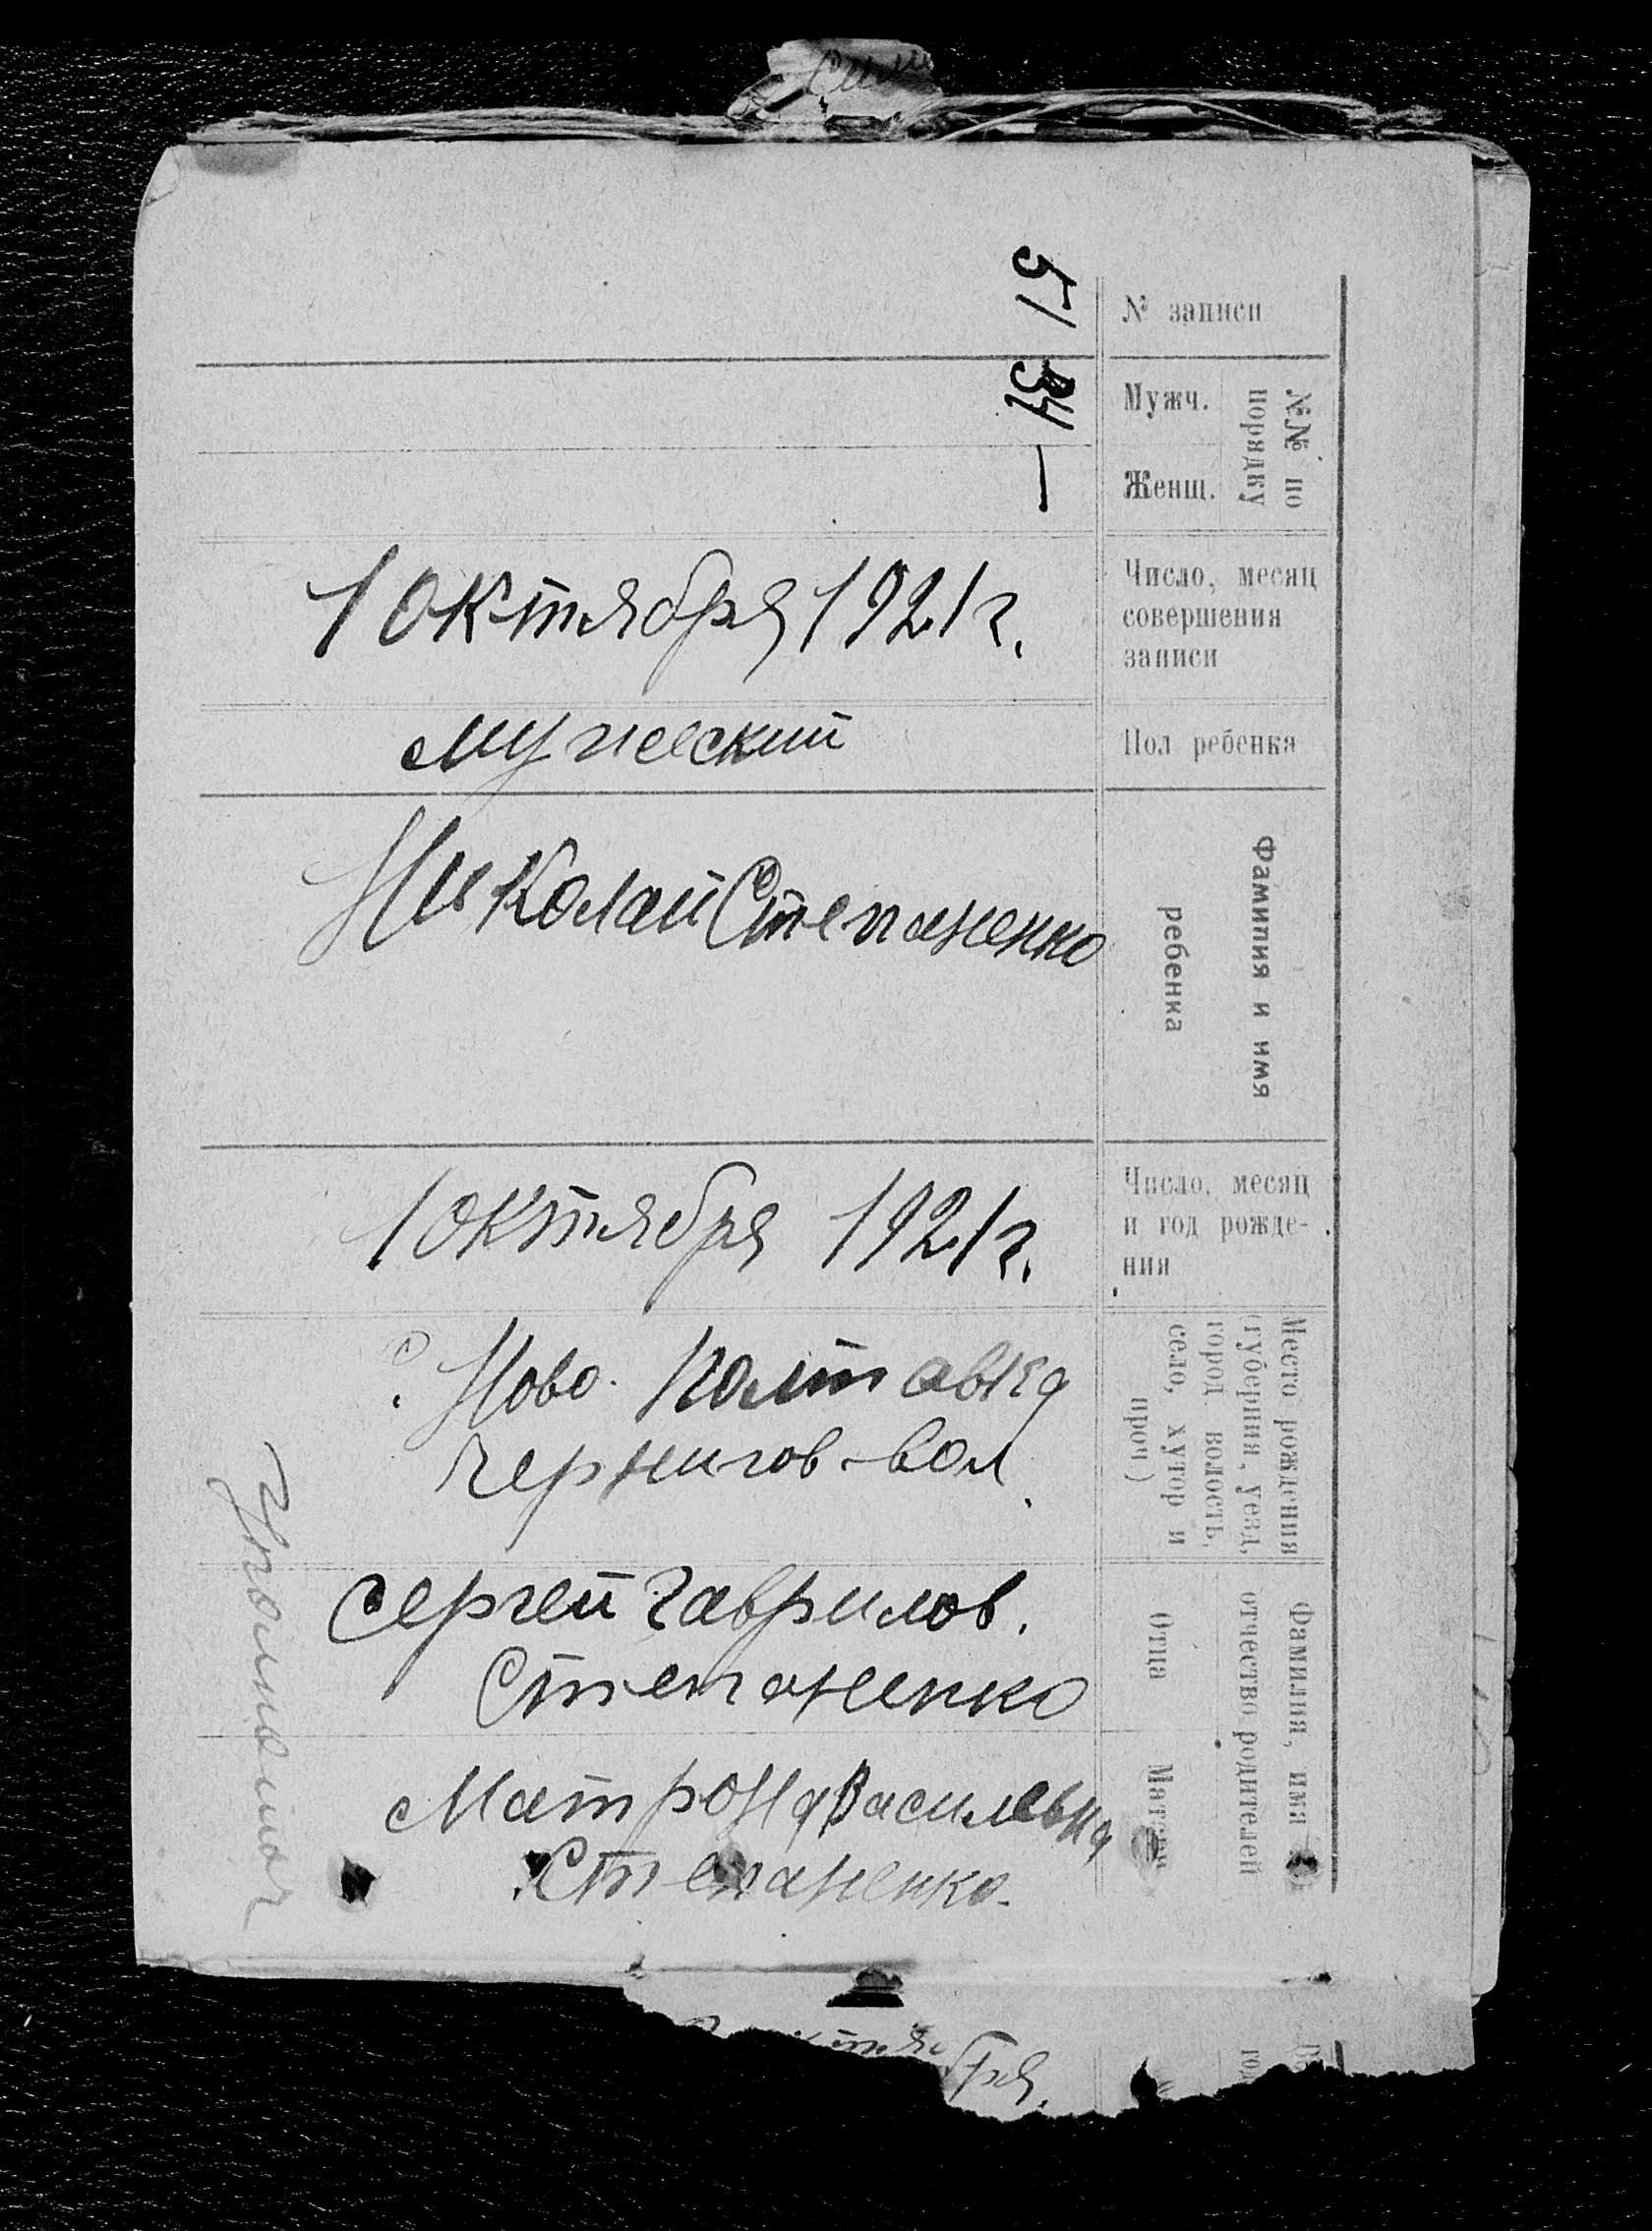 № записи
51
№№ по порядку
Мужч.
34
Женщ.
—
Число, месяц
совершения
записи
1 октября 1921 г.
Пол ребенка
мужеский
Фамилия и имя
ребенка
Николай Степаненко
Число, месяц
и год рожде-
ния
1 октября 1921 г.
Место рождения
(губерния, уезд,
город, волость,
село, хутор и
проч)
с. Ново-Полтавка
Чернигов-вол.
Фамилия, имя
отчество родителей
Отца
Сергей Гаврилов.
Степаненко
Матери
Матрона Василевна
Степаненко.